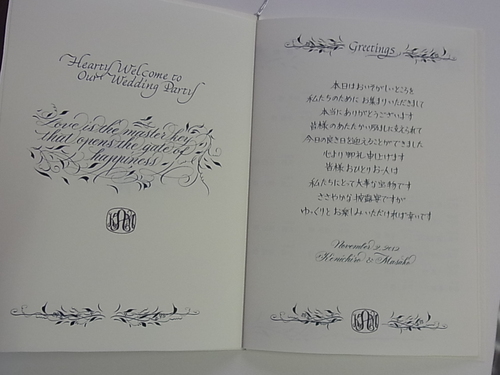 Hearty Welcome to
Our Wedding Party
Love is the master key
that opens the gate of
happiness
Greetings
本日はお忙しいところを
私たちのために お集まりいただきまして
本当にありがとうございます
皆様のあたたかい
今日の良き日を迎えることができました
心より御礼申し上げます
皆様おひとりお一人は
私たちにとって大事な宝物です
ささやかな披露宴ですが
ゆっくりとお楽しみいただければ幸いです
November 2, 2012
Kenichiro & Masako